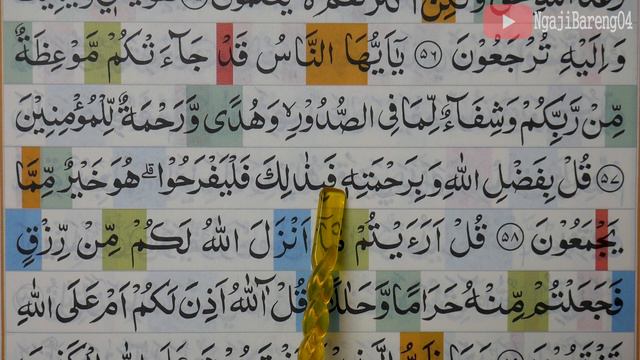 NgajiBareng04
وَاِلَيْهِ تُرْجَعُوْنَ ۝٥٦ يٰٓاَيُّهَا النَّاسُ قَدْ جَاۤءَتْكُمْ مَّوْعِظَةٌ
مِّنْ رَّبِّكُمْ وَشِفَاۤءٌ لِّمَا فِى الصُّدُوْرِۙ وَهُدًى وَّرَحْمَةٌ لِّلْمُؤْمِنِيْنَ
۝٥٧ قُلْ بِفَضْلِ اللّٰهِ وَبِرَحْمَتِهٖ فَبِذٰلِكَ فَلْيَفْرَحُوْاۗ هُوَ خَيْرٌ مِّمَّا
يَجْمَعُوْنَ ۝٥٨ قُلْ اَرَءَيْتُمْ مَّآ اَنْزَلَ اللّٰهُ لَكُمْ مِّنْ رِّزْقٍ
فَجَعَلْتُمْ مِّنْهُ حَرَامًا وَّحَلٰلًا قُلْ اٰۤللّٰهُ اَذِنَ لَكُمْ اَمْ عَلَى اللّٰهِ